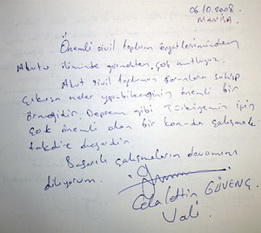 06.10.2008
MANİSA
Önemli sivil toplum örgütlerimizden
Akutu ilimizde görmekten çok mutluyuz.
Akut sivil toplumun sorunlara sahip
çıkarsa neler yapabileceğinin önemli bir
örneğidir. Deprem gibi Türkiyemiz için
çok önemli olan bir konuda çalışmak
takdire değerdir.
Başarılı çalışmaların devamını
diliyorum.
Celalettin GÜVENÇ
Vali